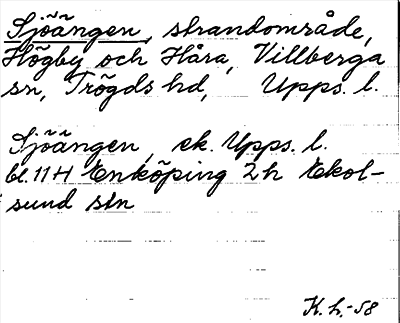 Sjöängen, strandområde,
Högby och Håra, Villberga
sn, Trögds hd, Upps. l.
Sjöängen, ek. Upps. l.
bl. 11 H Enköping 2h Ekol-
sund stn
K.h.-58